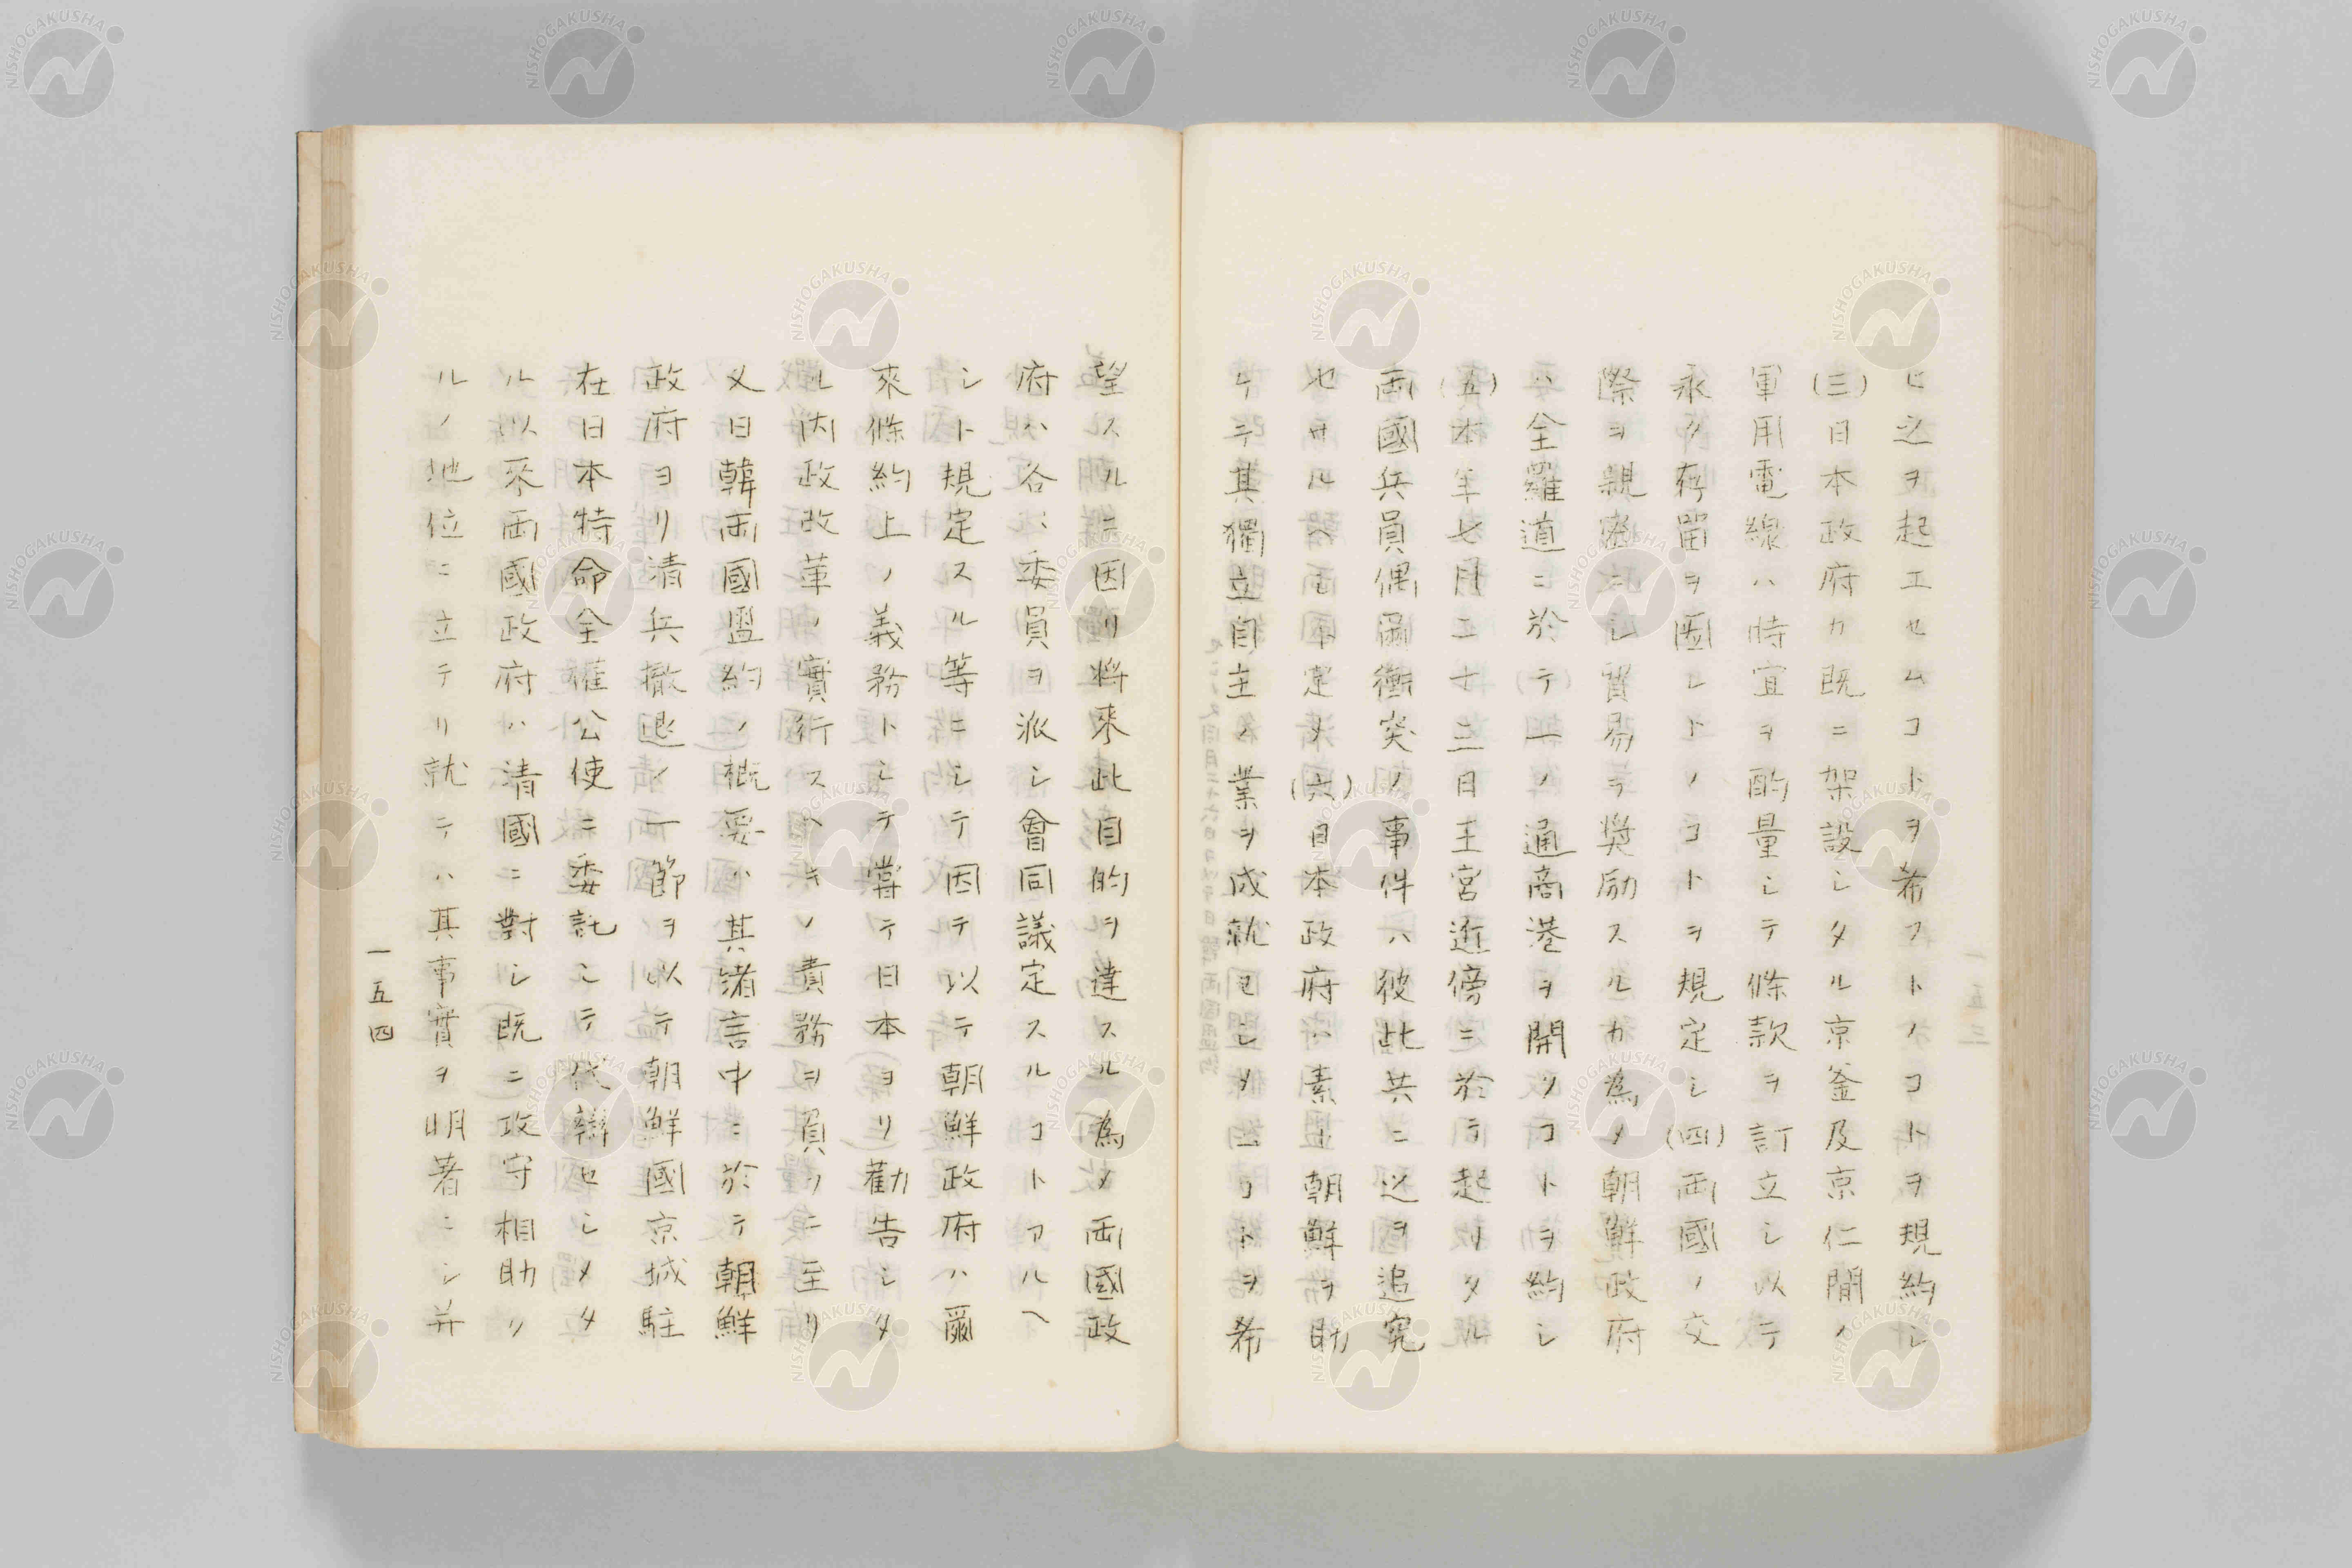 ビ之ヲ起工セムコトヲ希フトノコトヲ規約シ
(三)日本政府カ既ニ架設シタル京釜及京仁間ノ
軍用電線ハ時宜ヲ酌量シテ條款ヲ訂立シ以テ
永ク存留ヲ図レトノコトヲ規定シ(四)両國ノ交
際ヲ親密ニシ貿易ヲ奨励スルカ為メ朝鮮政府
ハ全羅道ニ於テ一ノ通商港ヲ開クコトヲ約シ
(五)本年七月二十三日王宮近傍ニ於テ起リタル
両國兵員偶爾衝突ノ事件ハ彼此共ニ之ヲ追究
セサルヘモト定メ(六)日本政府ハ素ト朝鮮ヲ助
ケテ其獨立自主ノ業ヲ成就セシメムコトヲ希
望スルニ因リ将來此目的ヲ達スル為メ両國政
府ハ各〻委員ヲ派シ會同議定スルコトアルヘ
シト規定スル等ニシテ因テ以テ朝鮮政府ハ爾
來條約上ノ義務トシテ嘗テ日本ヨリ勸告シタ
ル内政改革ノ實行スヘキノ責務ヲ負フニ至リ
又日韓両國盟約ノ概要ハ其緒言中ニ於テ朝鮮
政府ヨリ清兵撤退ノ一節ヲ以テ朝鮮國京城駐
在日本特命全權公使ニ委託シテ代辦セシメタ
ル以來両國政府ハ清國ニ對シ既ニ攻守相助ク
ルノ地位ニ立テリ就テハ其事實ヲ明著ニシ并
一五四